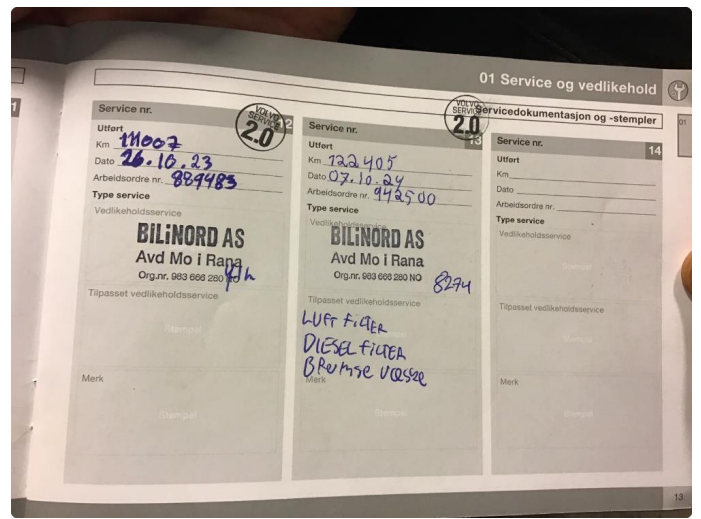 01 Service og vedlikehold
Servicedokumentasjon og -stempler
01
1
Service nr. 12
VOLVO SERVICE 2.0
Utført
Km 111007
Dato 26.10.23
Arbeidsordre nr. 889483
Type service
Vedlikeholdsservice
BiLiNORD AS
Avd Mo i Rana
Org.nr. 983 666 280
Tilpasset vedlikeholdsservice
Stempel
Merk
Stempel
Service nr. 13
VOLVO SERVICE 2.0
Utført
Km 122405
Dato 07.10.24
Arbeidsordre nr. 942500
Type service
Vedlikeholdsservice
BiLiNORD AS
Avd Mo i Rana
Org.nr. 983 666 280 NO
8274
Tilpasset vedlikeholdsservice
LUFT FiLTER
DIESEL FiLTER
BREMSE VÆSKE
Merk
Stempel
Service nr. 14
Utført
Km
Dato
Arbeidsordre nr.
Type service
Vedlikeholdsservice
Stempel
Tilpasset vedlikeholdsservice
Stempel
Merk
Stempel
13